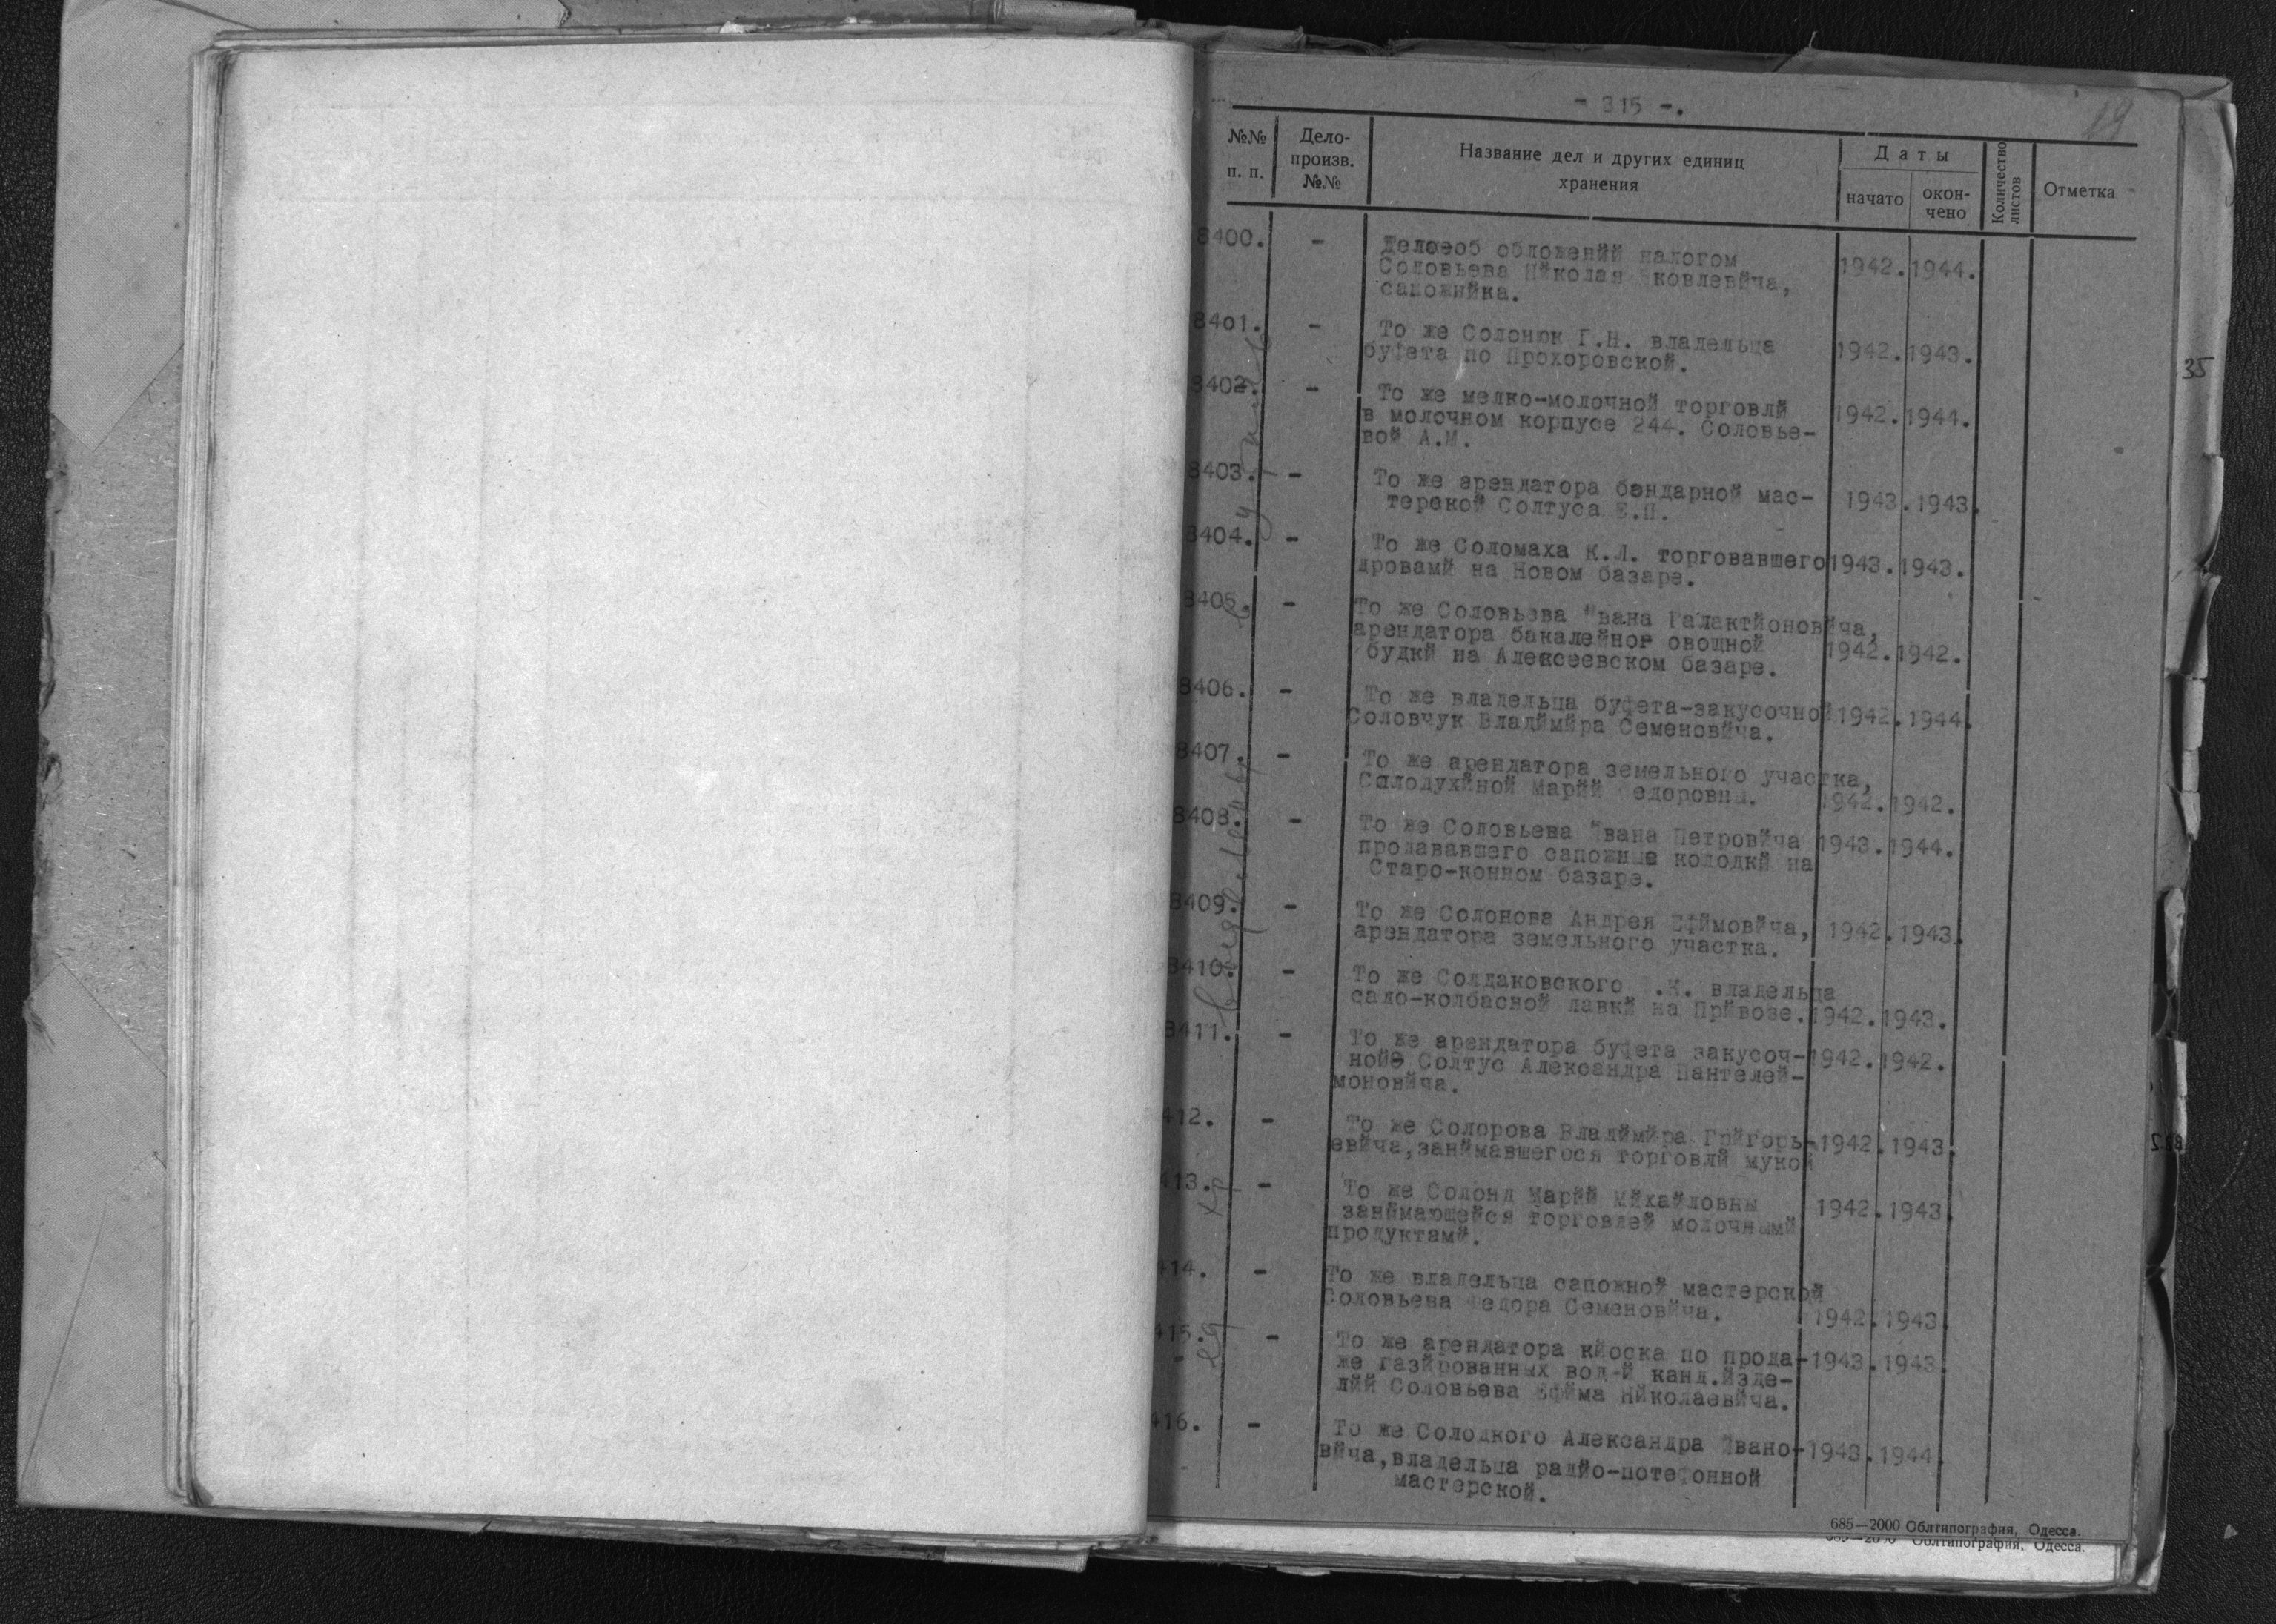 - 315 -.
19
№№ п. п.
Дело-
произв.
№№
Название дел и других единиц
хранения
Даты
начато
окон-
чено
Количество
листов
Отметка
8400. - Делоеоб обложений налогом
Соловьева Николая Яковлевича, 1942. 1944.
сапожника.
8401. - То же Солонюк Г.Н. владельца
буфета по Прохоровской. 1942. 1943.
8402. - То же мелко-молочной торговли
в молочном корпусе 244. Соловье- 1942. 1944.
вой А.М.
8403. - То же арендатора бондарной мас-
терской Солтуса Е.П. 1943. 1943.
8404. - То же Соломаха К.Л. торговавшего 1943. 1943.
дровами на Новом базаре.
8405. - То же Соловьева Ивана Галактионовича,
арендатора бакалейног овощной 1942. 1942.
будки на Алексеевском базаре.
8406. - То же владельца буфета-закусочной 1942. 1944.
Соловчук Владимира Семеновича.
8407. - То же арендатора земельного участка,
Солодухиной Марии Федоровны. 1942. 1942.
8408. - То же Соловьева Ивана Петровича 1943. 1944.
продававшего сапожные колодки на
Старо-конном базаре.
8409. - То же Солонова Андрея Ефимовича, 1942. 1943.
арендатора земельного участка.
8410. - То же Солдаковского .К. владельца
сало-колбасной лавки на Привозе. 1942. 1943.
8411. - То же арендатора буфета закусоч- 1942. 1942.
ной Солтус Александра Пантелей-
моновича.
412. - То же Солорова Владимира Григорь- 1942. 1943.
евича, занимавшегося торговли мукой
413. - То же Солонд Марии Михайловны 1942. 1943.
занимающейся торговлей молочными
продуктами.
414. - То же владельца сапожной мастерской
Соловьева Федора Семеновича. 1942. 1943.
415. - То же арендатора киоска по прода- 1943. 1943.
же газированных вод-и канд.изде-
лий Соловьева Ефима Николаевича.
416. - То же Солодкого Александра Ивано- 1943. 1944.
вича, владельца радио-потефонной
мастерской.
685—2000 Облтипография, Одесса.
Облтипография, Одесса.
35